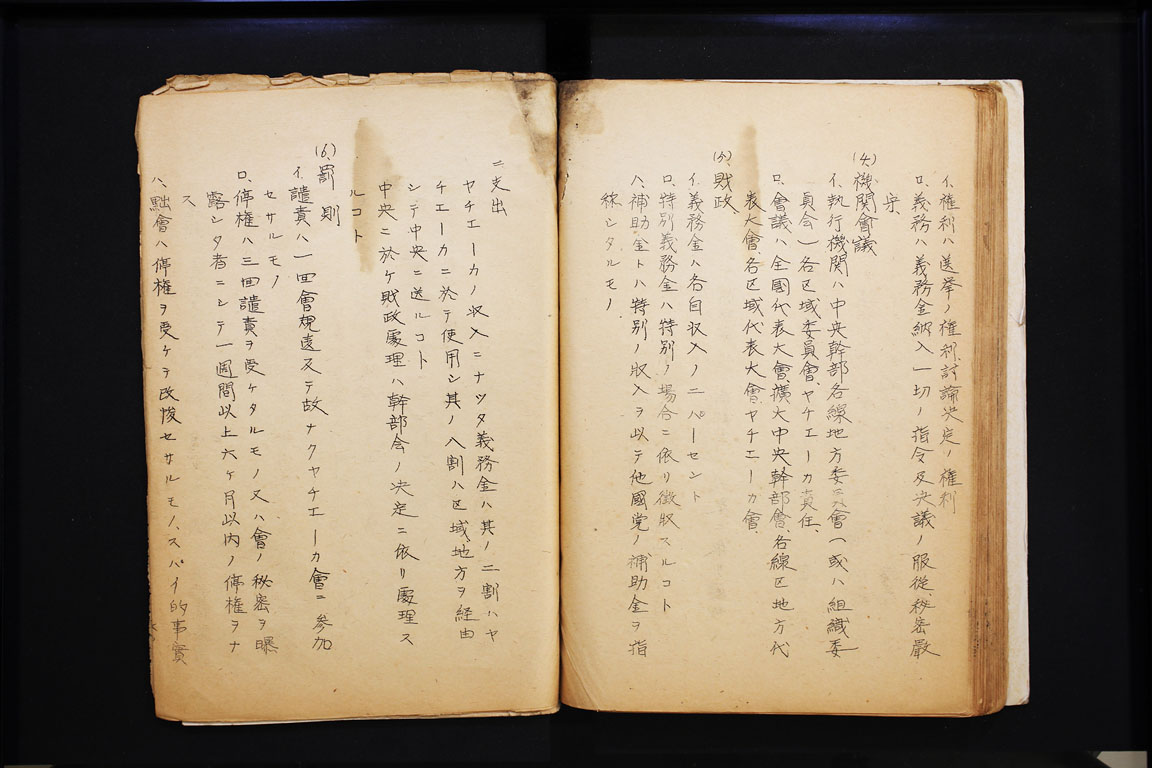 イ.權利ハ送挙ノ權利、討論決定ノ權利
ロ.義務ハ義務金納入一切ノ指令及決議ノ服從秘密嚴
守.
(4.)機関會議
イ.執行機関ハ中央幹部各線地方委員會(或ハ組織委
員会)各区域委員會、ヤチエーカ責任.
ロ.會議ハ全國代表大會、擴大中央幹部會、各線区地方代
表大會、各区域代表大會、ヤチエーカ會.
(5).財政
イ.義務金ハ各自収入ノニパーセント
ロ.特別義務金ハ特別ノ場合ニ依リ徴収スルコト
ハ.補助金トハ特別ノ收入ヲ以テ他國党ノ補助金ヲ指
称シタルモノ.
ニ支出
ヤチエーカノ収入ニナツタ義務金ハ其ノ二割ハヤ
チエーカニ於テ使用シ其ノ八割ハ区域地方ヲ経由
シテ中央ニ送ルコト
中央ニ於ケ財政處理ハ幹部会ノ決定ニ依リ處理ス
ルコト
(6.)罰則
イ.譴責ハ一回會規違及テ故ナクヤチエーカ會ニ参加
セサルモノ
ロ.停権ハ三回譴責ヲ受ケタルモノ又ハ會ノ秘密ヲ曝
露シタ者ニシテ一週間以上六ケ月以内ノ停権ヲナ
ス
ハ.黜會ハ停権ヲ受ケヲ改悛セサルモノ、スパイ的事實